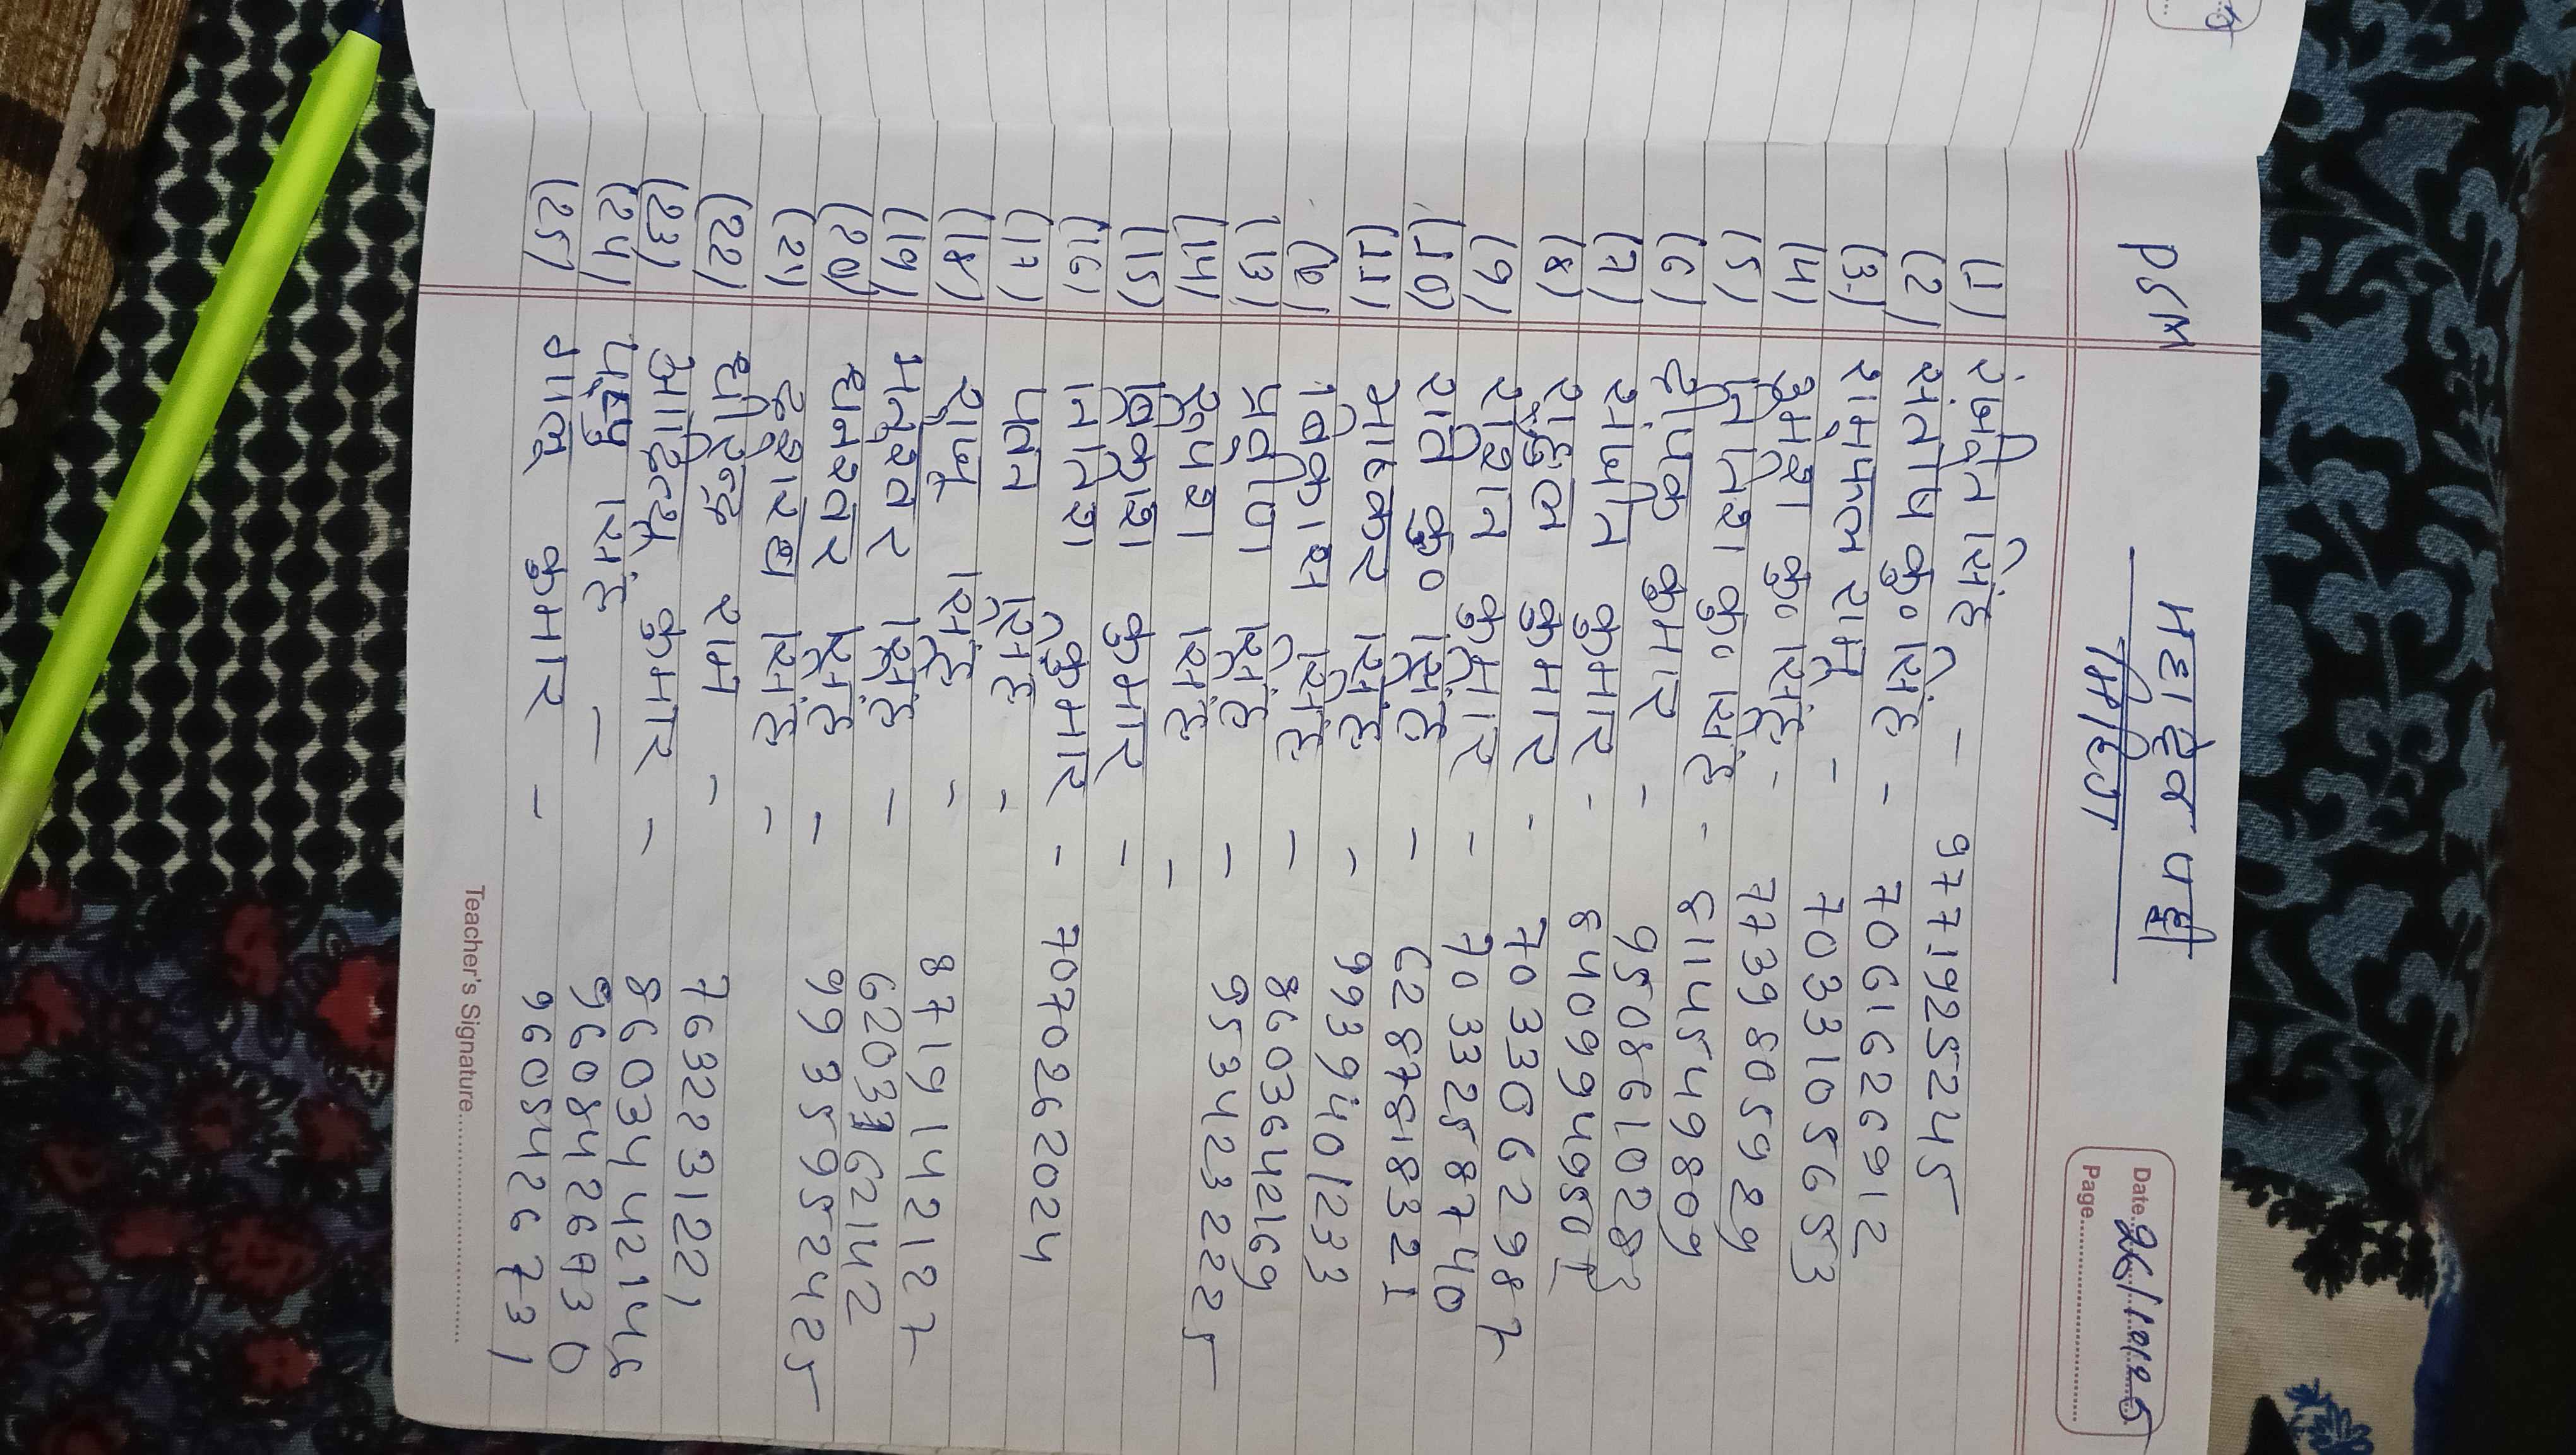 PSM
महादेव पट्टी
मिर्जा
Date 26/10/25
Page
(1) रंजीत सिंह - 9771925245
(2) संतोष कु० सिंह - 7061626912
(3) रामफल राम - 7033105653
(4) उमेश कु० सिंह - 7739805929
(5) नितिश कु० सिंह - 8114549809
(6) दीपक कुमार - 9508610283
(7) रांजीत कुमार - 640994950
(8) राहुल कुमार - 7033062987
(9) रौशन कुमार - 7033258740
(10) रवि कु० सिंह - 6287818321
(11) भास्कर सिंह - 9939401233
(12) विकास सिंह - 8603642169
(13) प्रवीण सिंह - 9534232225
(14) रूपेश सिंह -
(15) विकाश कुमार -
(16) नितिश कुमार - 7070262024
(17) पवन सिंह -
(18) राजू सिंह - 8719142127
(19) भुनेश्वर सिंह - 6203162142
(20) धनेश्वर सिंह - 9935952425
(21) दशरथ सिंह -
(22) धीरेन्द्र राम - 7632231221
(23) आदित्य कुमार - 8603442146
(24) पप्पु सिंह - 9608426730
(25) गोलू कुमार - 9605426731
Teacher's Signature